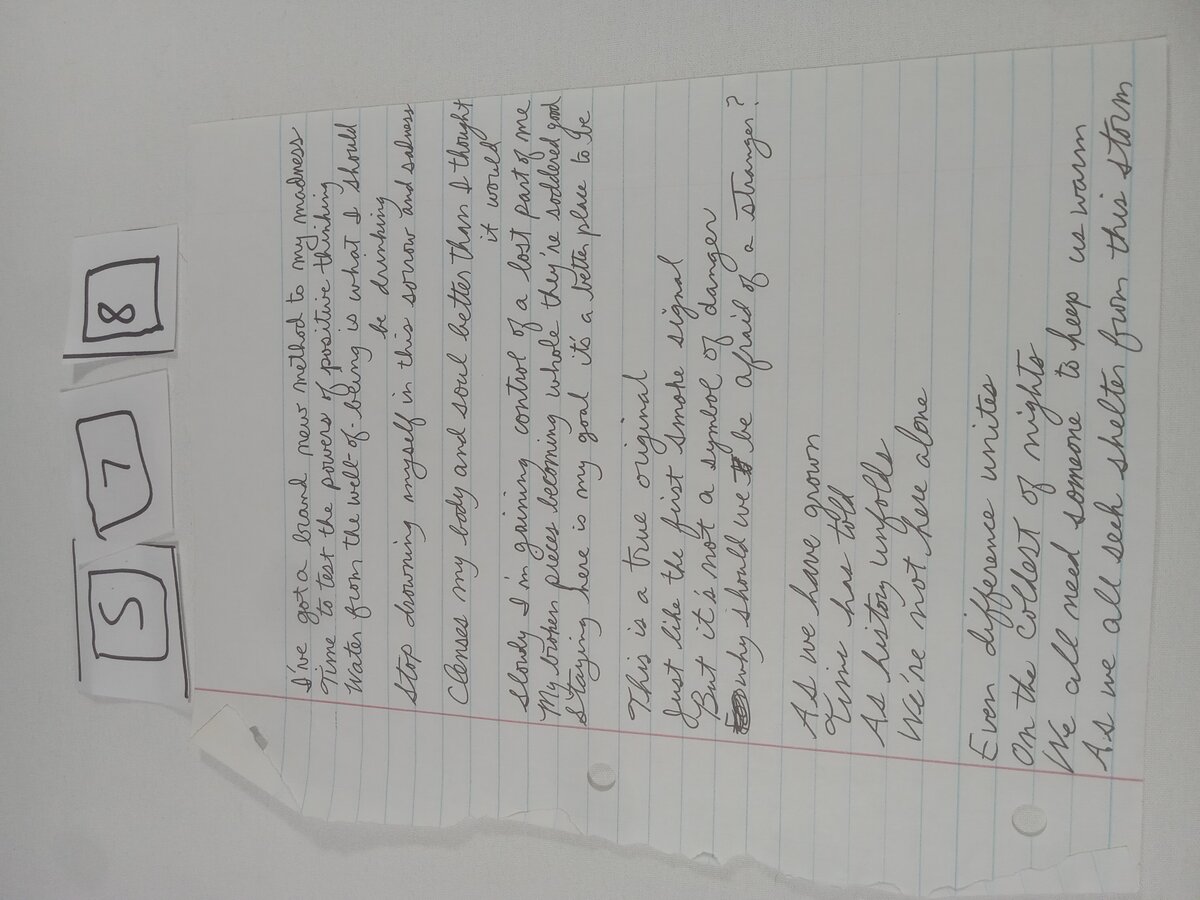 5 7 8
I've got a brand new method to my madness
Time to test the powers of positive thinking
Water from the well-of-being is what I should
be drinking
Stop drowning myself in this sorrow and sadness
Clenses my body and soul better than I thought
it would
Slowly I'm gaining control of a lost part of me
My broken pieces becoming whole they're soddered good
Staying here is my goal it's a better place to be
This is a true original
Just like the first smoke signal
But it's not a symbol of danger
why should we be afraid of a stranger?
As we have grown
Time has told
As history unfolds
We're not here alone
Even difference unites
On the coldest of nights
We all need someone to keep us warm
As we all seek shelter from this storm